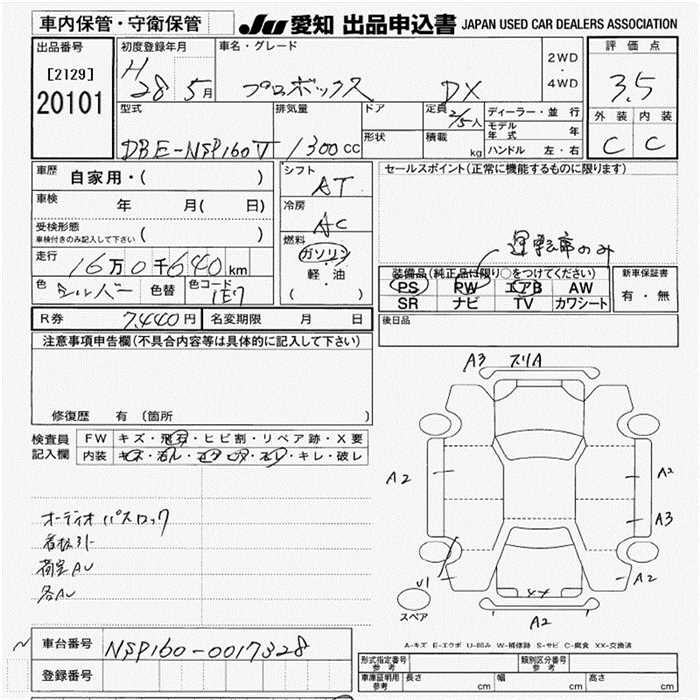 車内保管・守衛保管
JU 愛知 出品申込書 JAPAN USED CAR DEALERS ASSOCIATION
出品番号 初度登録年月 車名・グレード 評価点
[2129] H 28 5月 プロボックス DX 2WD・4WD 3.5
20101
型式 排気量 ドア 定員 2/5人 ディーラー・並行 外装 内装
DBE-NSP160V 1300cc 形状 積載 kg モデル年式 年 C C
ハンドル 左・右
車歴 自家用・( ) シフト AT セールスポイント(正常に機能するものに限ります)
車検 年 月( 日) 冷房 AC
受検形態 車検付きのみ記入して下さい ( ) 燃料 ガソリン・軽・油 ( ) 運転席のみ
走行 16万0千640km
装備品(純正品は限り○をつけてください) 新車保証書
色 シルバー 色替 色コード 1E7 PS PW エアB AW 有・無
SR ナビ TV カワシート
R券 7,440円 名変期限 月 日 後日品
注意事項申告欄(不具合内容等は具体的に記入して下さい)
修復歴 有 (箇所
検査員記入欄 FW キズ・飛石・ヒビ割・リペア跡・X要
内装 キズ・・・・キレ・破レ
オーディオパスロック
看板引
荷室AU
各AU
A3 スリA
A2
A2
A3
A2
U1
A2
スペア
A-キズ E-エクボ U-凹み W-補修跡 S-サビ C-腐食 XX-交換済
車台番号 NSP160-0017328
登録番号
形式指定番号 参考 類別区分番号 参考
車庫証明用 参考 長さ cm 幅 cm 高さ cm